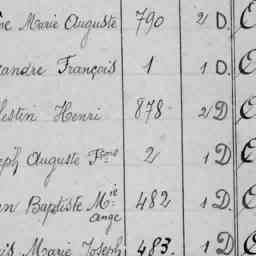 ne Marie Auguste 790 2 D. C
andre François 1 1 D. C
lestin Henri 878 2 D C
eph Auguste Fçois 2 1 D C
n Baptiste Mie 482 1 D. C
ange
is Marie Joseph 483. 1 D C